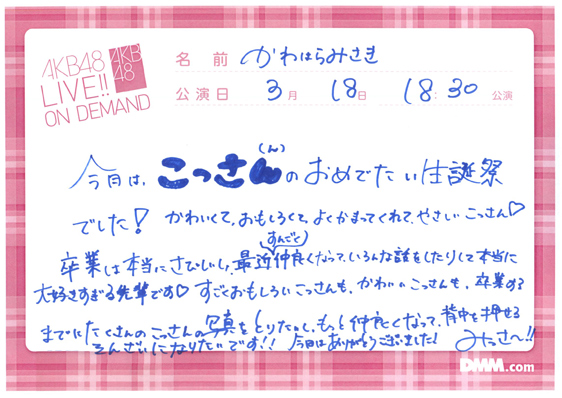 AKB48
LIVE!!
ON DEMAND
AKB
48
名前 かわはらみさき
公演日 3月 18日 18:30 公演
(ん)
今日は、こっさんのおめでたい生誕祭
でした! かわいくて、おもしろくて、よくかまってくれて、やさしいこっさん♡
すんごく
卒業は本当にさびしいし、最近仲良くなって、いろんな話をしたりして本当に
大好きすぎる先輩です♡ すごくおもしろいこっさんも、かわいいこっさんも、卒業する
までにたくさんのこっさんの写真をとりたいし、もっと仲良くなって、背中を押せる
そんざいになりたいです!! 今日はありがとうございました! みっさ〜!!
DMM.com